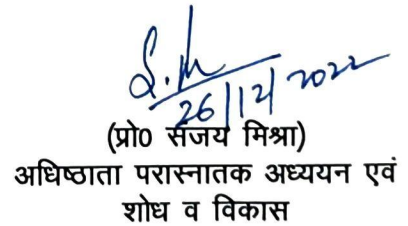 S.M
26/12/2022
(प्रो0 संजय मिश्रा)
अधिष्ठाता परास्नातक अध्ययन एवं
शोध व विकास